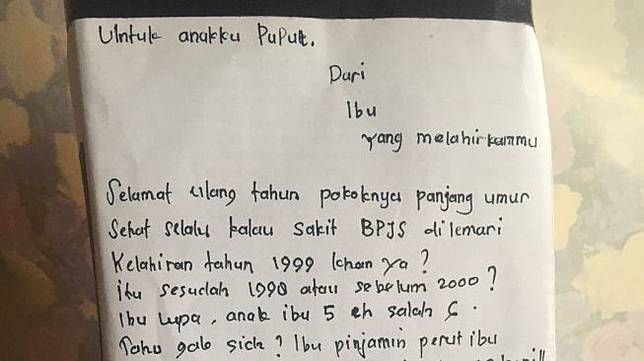 Untuk anakku Puput.
Dari
Ibu
yang melahirkanmu
Selamat ulang tahun pokoknya panjang umur
Sehat selalu kalau sakit BPJS dilemari
Kelahiran tahun 1999 khan ya ?
itu sesudah 1998 atau sebelum 2000 ?
Ibu lupa, anak ibu 5 eh salah 6.
Tahu gak sich ? Ibu pinjamin perut ibu